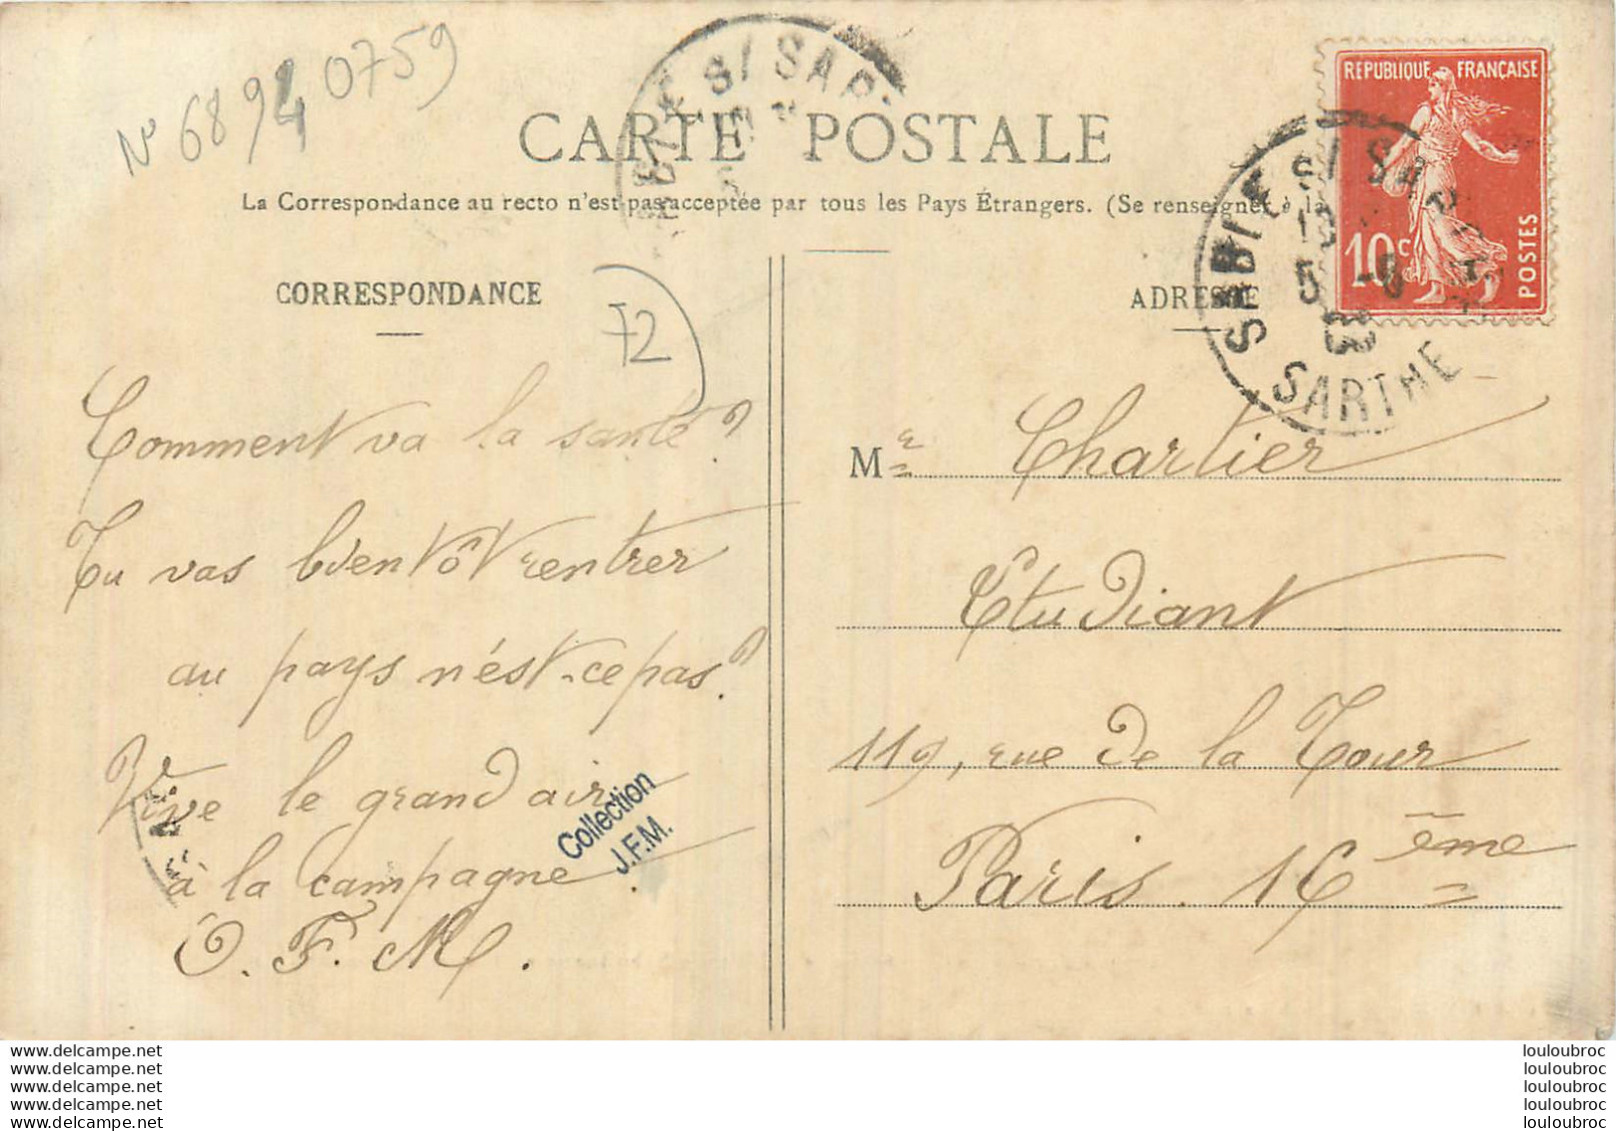 N° 68940759
CARTE POSTALE
La Correspondance au recto n'est pas acceptée par tous les Pays Étrangers. (Se renseigner à la
REPUBLIQUE FRANÇAISE
10c
POSTES
SABLÉ S/ SARTHE
5 -8
08
SARTHE
CORRESPONDANCE
72
Comment va la santé?
Tu vas bientôt rentrer
au pays n'est-ce pas?
Vive le grand air
à la campagne.
O. F. M.
Collection
J.F.M.
ADRESSE
Mr Chartier
Etudiant
119, rue de la Tour
Paris. 16ème
www.delcampe.net
www.delcampe.net
www.delcampe.net
www.delcampe.net
www.delcampe.net
louloubroc
louloubroc
louloubroc
louloubroc
louloubroc